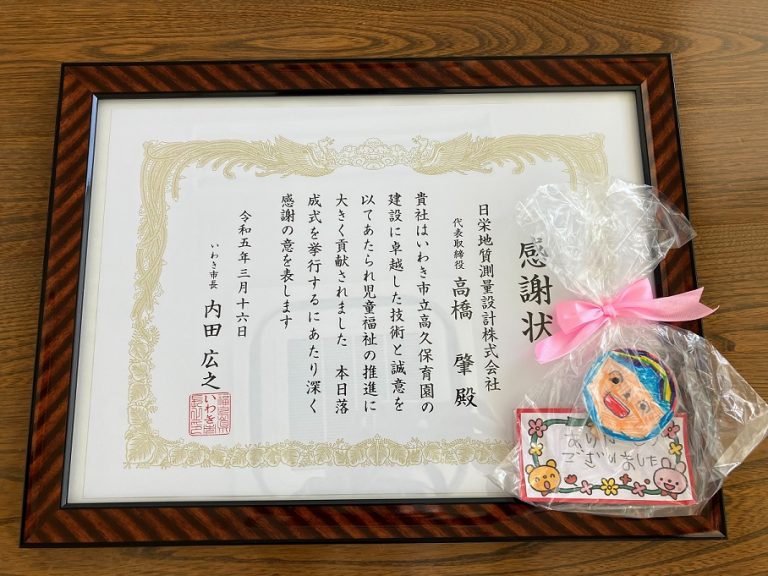 感謝状
日栄地質測量設計株式会社
代表取締役 高橋 肇 殿
貴社はいわき市立高久保育園の
建設に卓越した技術と誠意を
以てあたられ児童福祉の推進に
大きく貢献されました 本日落
成式を挙行するにあたり深く
感謝の意を表します
令和五年三月十六日
いわき市長 内田広之
ありがとう
ございました